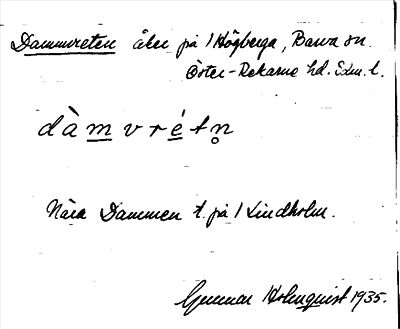 Dammvreten åker på 1 Högberga, Barva sn.
Öster-Rekarne hd. Sdm. l.
dàmvrétn̥
Nära Dammen t. på 1 Lindholm.
Gunnar Holmquist 1935.